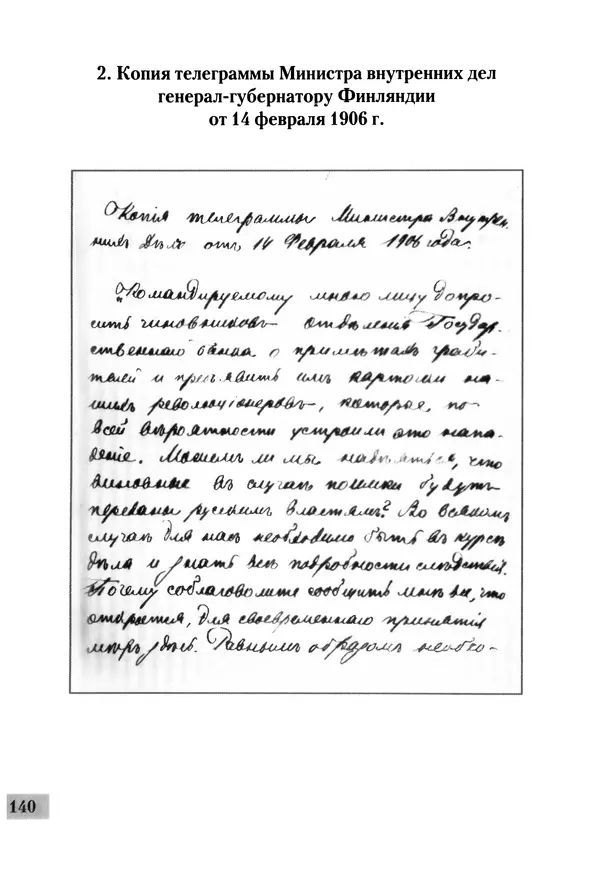 2. Копия телеграммы Министра внутренних дел
генерал-губернатору Финляндии
от 14 февраля 1906 г.
Копія телеграммы Министра Внутрен-
нихъ Дѣлъ отъ 14 Февраля 1906 года.
"Командируемому мною лицу допро-
сить чиновниковъ отдѣленія Государ-
ственнаго банка о примѣтахъ граби-
телей и предъявить имъ карточки на-
шихъ революціонеровъ, которые, по
всей вѣроятности устроили это напа-
деніе. Можемъ ли мы надѣяться, что
виновные въ случаѣ поимки будутъ
переданы русскимъ властямъ? Во всякомъ
случаѣ для насъ необходимо быть въ курсѣ
дѣла и знать всѣ подробности слѣдствія.
Почему соблаговолите сообщить мнѣ все, что
откроется, для своевременнаго принятія
мѣръ здѣсь. Равнымъ образомъ необхо-
140